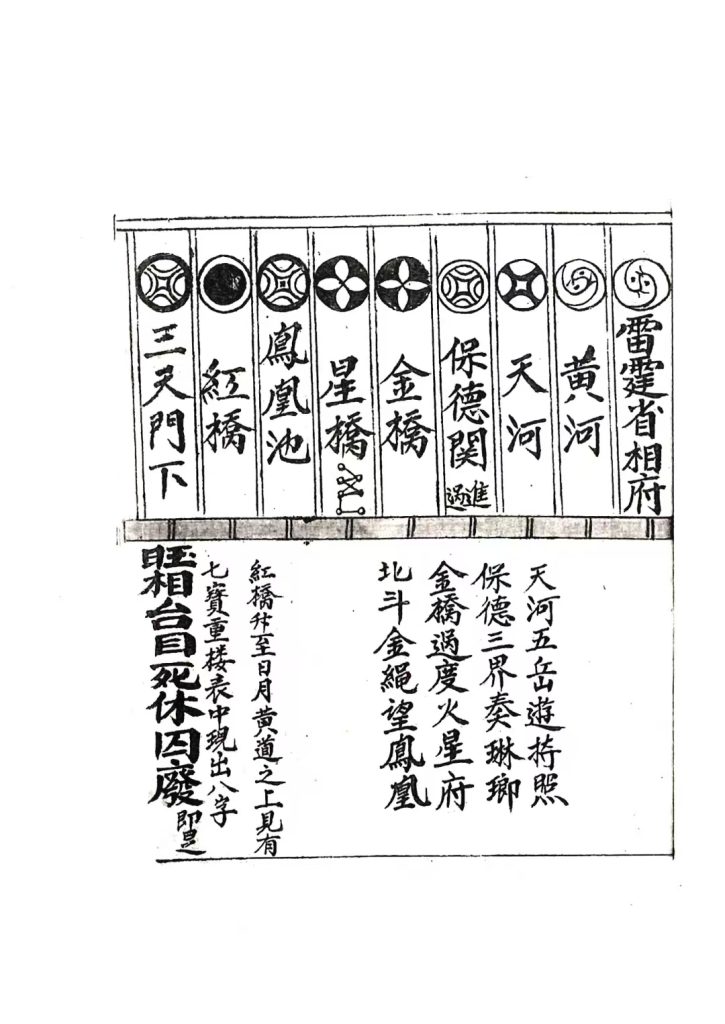 雷霆省相府
黄河
天河
保德関進過
金橋
星橋
鳳凰池
紅橋
三天門下
天河五岳遊持照
保德三界奏琳瑯
金橋過度火星府
北斗金繩望鳳凰
紅橋升至日月黄道之上見有
七寳重楼表中現出八字
旺相台目死休囚廢即是